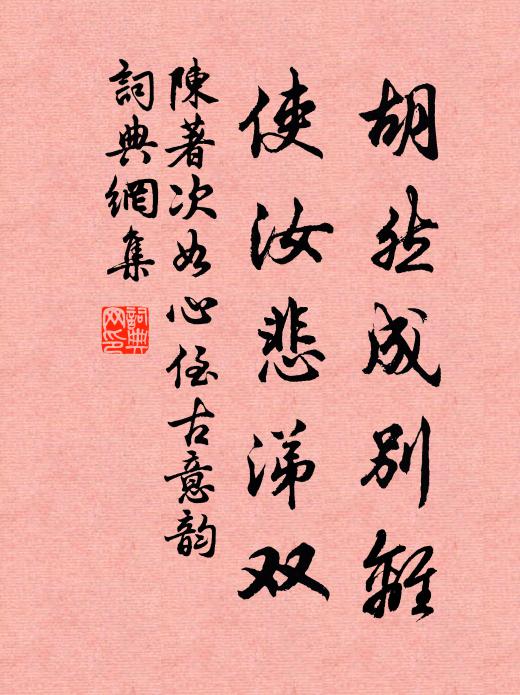 胡然成别離
使汝悲涕双
陳著次如心侄古意韵
詞典網集
詞典網印